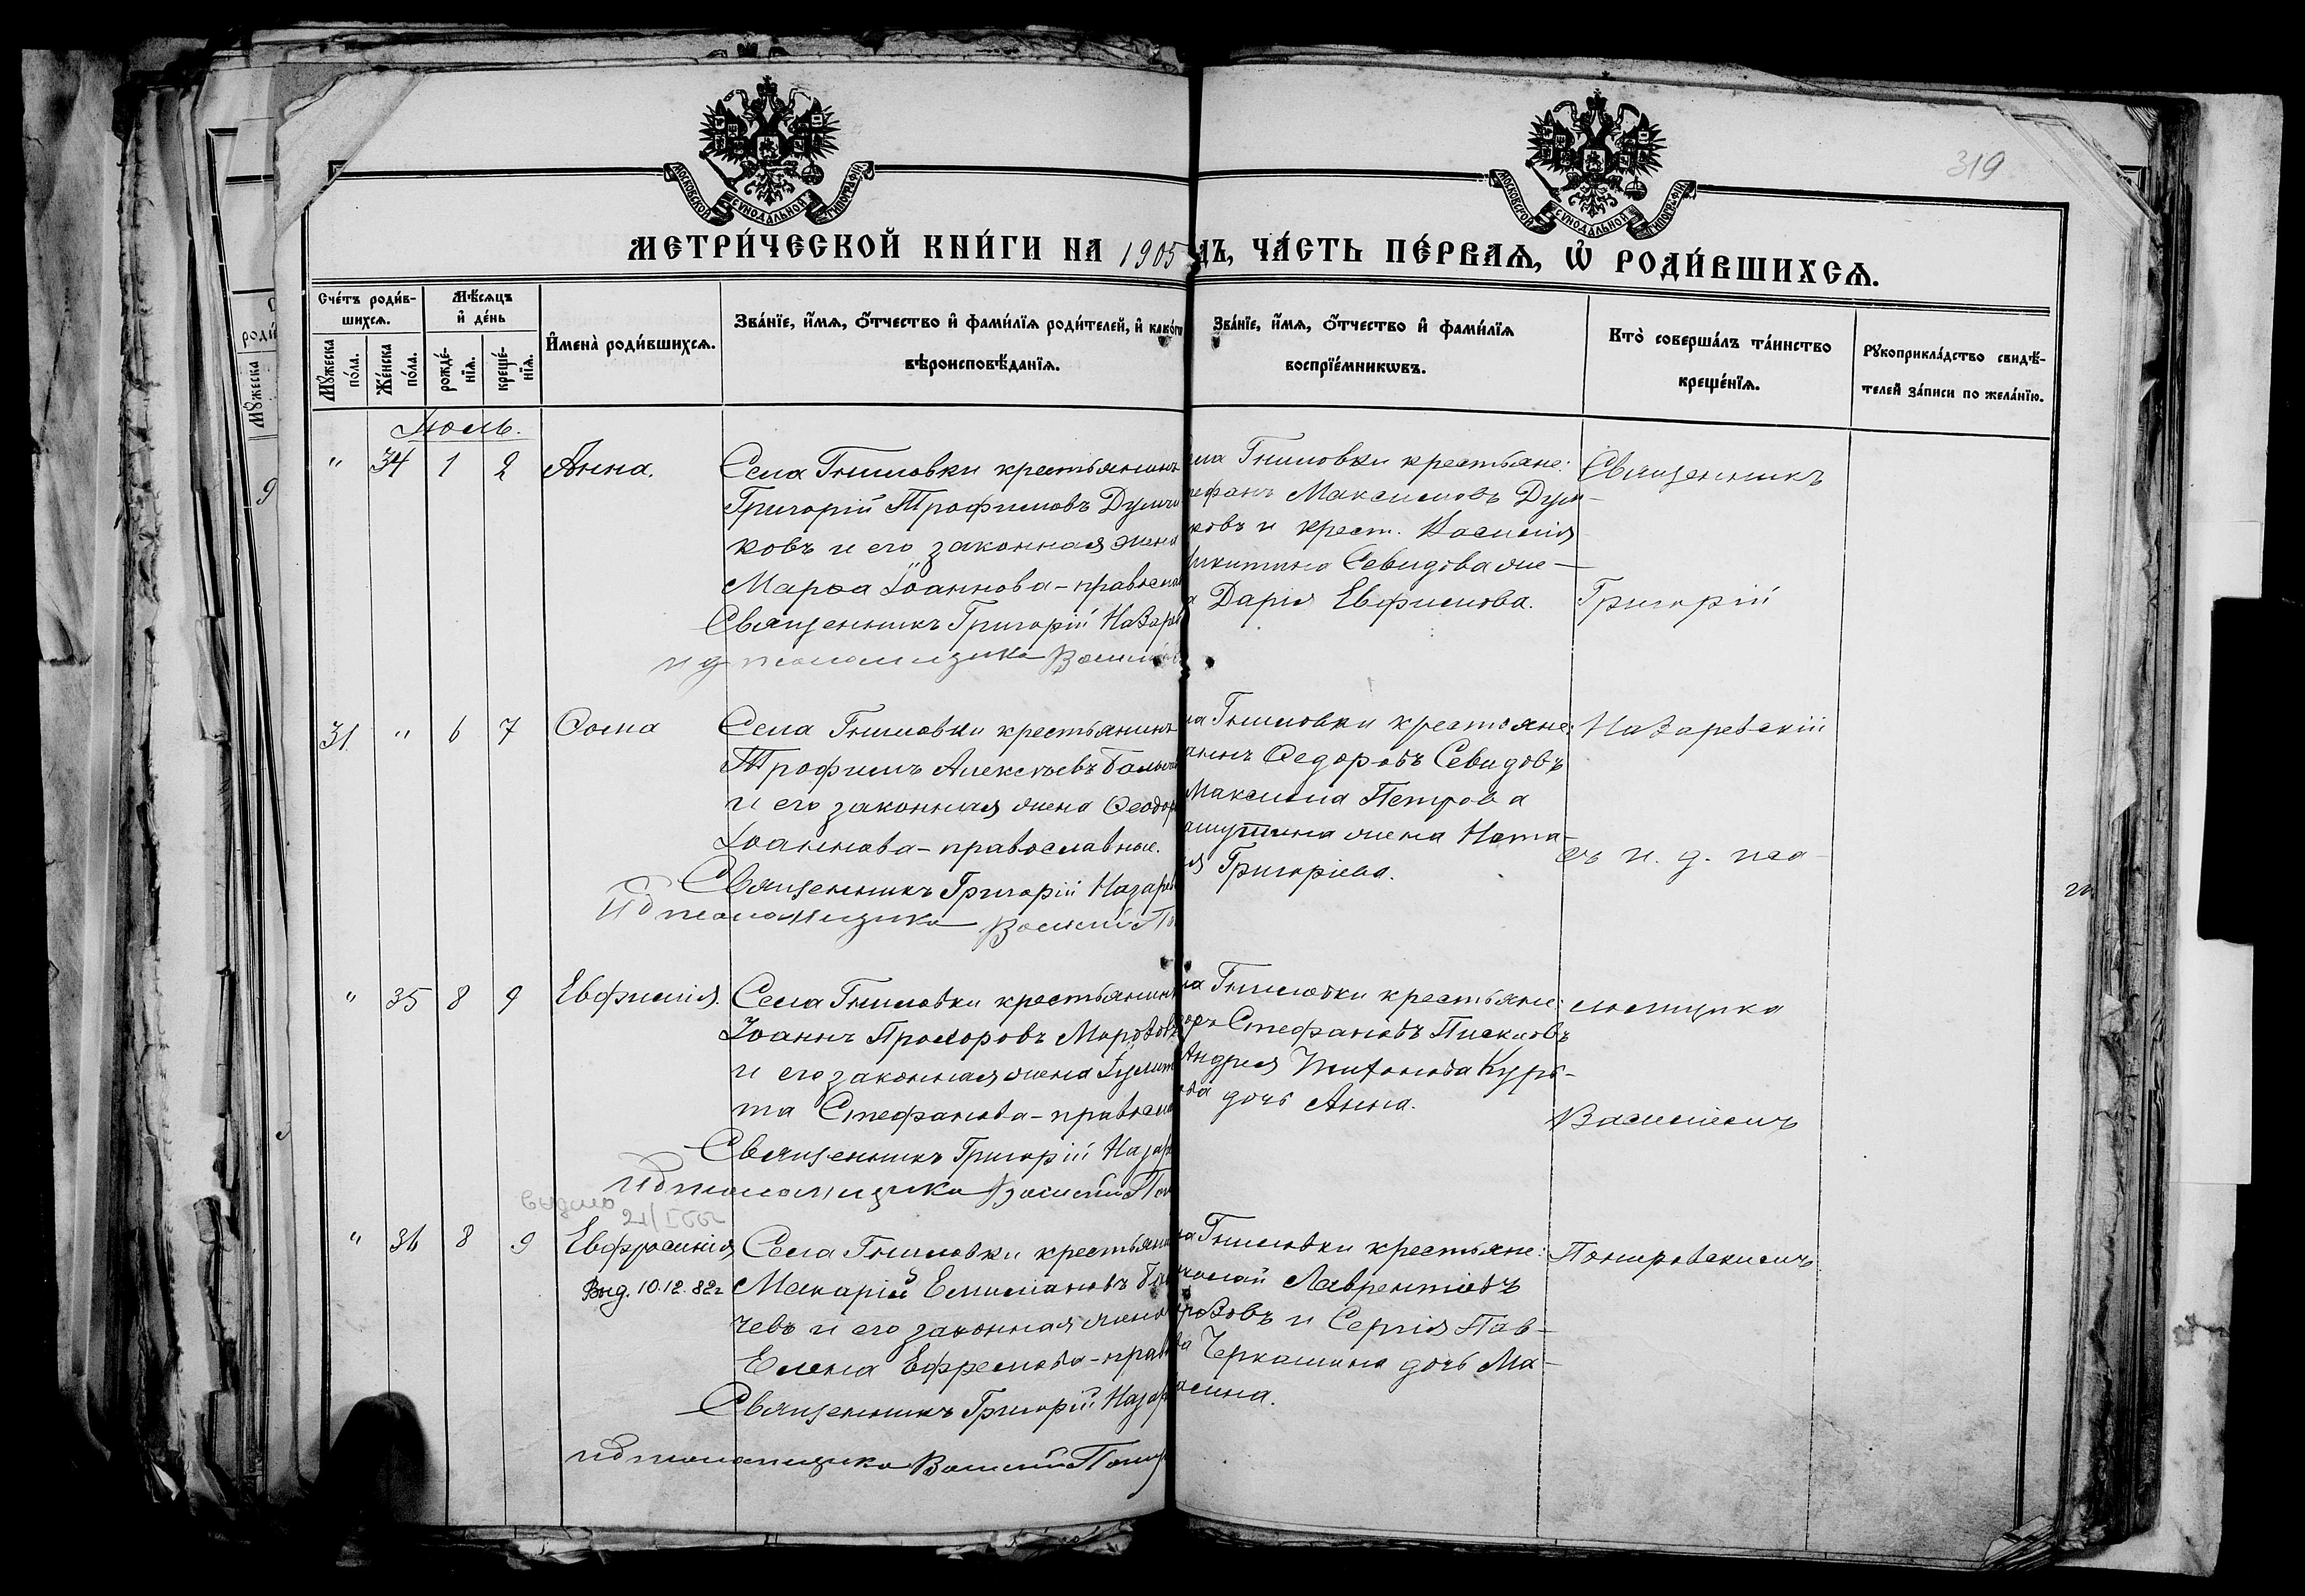 319
МОСКОВСКОЙ СѴНОДАЛЬНОЙ ТИПОГРАФІИ
МОСКОВСКОЙ СѴНОДАЛЬНОЙ ТИПОГРАФІИ
МЕТРИ́ЧЕСКОЙ КНИ́ГИ НА 1905 ДЪ, ЧА́СТЬ ПЕ́РВАѦ, Ѡ҆ РОДИ́ВШИХСѦ.
Сче́тъ роди́в-
шихсѧ.
Мꙋ́жеска по́ла.
Же́нска по́ла.
Мѣ́сѧцъ
и҆ де́нь
рожде́-
нїѧ.
креще́-
нїѧ.
И҆мена̀ роди́вшихсѧ.
Зва́нїе, и҆́мѧ, ѻ҆́тчество и҆ фами́лїѧ роди́телей, и҆ како́гѡ
вѣроисповѣ́данїѧ.
Зва́нїе, и҆́мѧ, ѻ҆́тчество и҆ фами́лїѧ
воспрїе́мникѡвъ.
Кто̀ соверша́лъ та́инство
креще́нїѧ.
Рꙋкоприкла́дство свидѣ́-
телей за́писи по жела́нїю.
Іюль.
" 34 1 2 Анна.
Села Гниловки крестьянинъ
Григорій Трофимовъ
ковъ и его законная жена
Марѳа Іоаннова - православ
Священникъ Григорій Назар
и д псаломщика Василій
ла Гниловки крестьяне:
ефанъ Максимовъ
ковъ и крест. Василія
икитина Севидова же-
а Дарія Евфимова.
Священникъ
Григорій
31. " 6 7 Ѳома
Села Гниловки крестьянинъ
Трофимъ Алексѣевъ
и его законная жена Ѳеодор
Іоаннова - православные.
Священникъ Григорій Назарев
И д псаломщика Василій По
ла Гниловки крестьяне:
аннъ Ѳедоровъ Севидовъ
Максима Петрова
жена Ната-
ія Григоріева.
Назаревскій
съ и. д. пса-
" 35 8 9 Евфимія.
Села Гниловки крестьянинъ
Іоаннъ Прохоровъ Морозовъ
и его законная жена Іулит
та Стефанова - правосла
Священникъ Григорій Назар
И д псаломщика Василій Пон
ла Гниловки крестьяне:
Стефановъ
Андрея
ова дочь Анна.
ломщика
Василіемъ
выдано
21/
" 36 8 9 Евфросинія
Выд. 10.12.82г
Села Гниловки крестьянинъ
Макарій Емиліановъ
чевъ и его законная жена
Елена Ефремова - прав
Священникъ Григорій Назар
и д псаломщика Василій Пону
ла Гниловки крестьяне:
колай Лаврентіевъ
розовъ и Сергія Пав-
ва Черкашина дочь Ма-